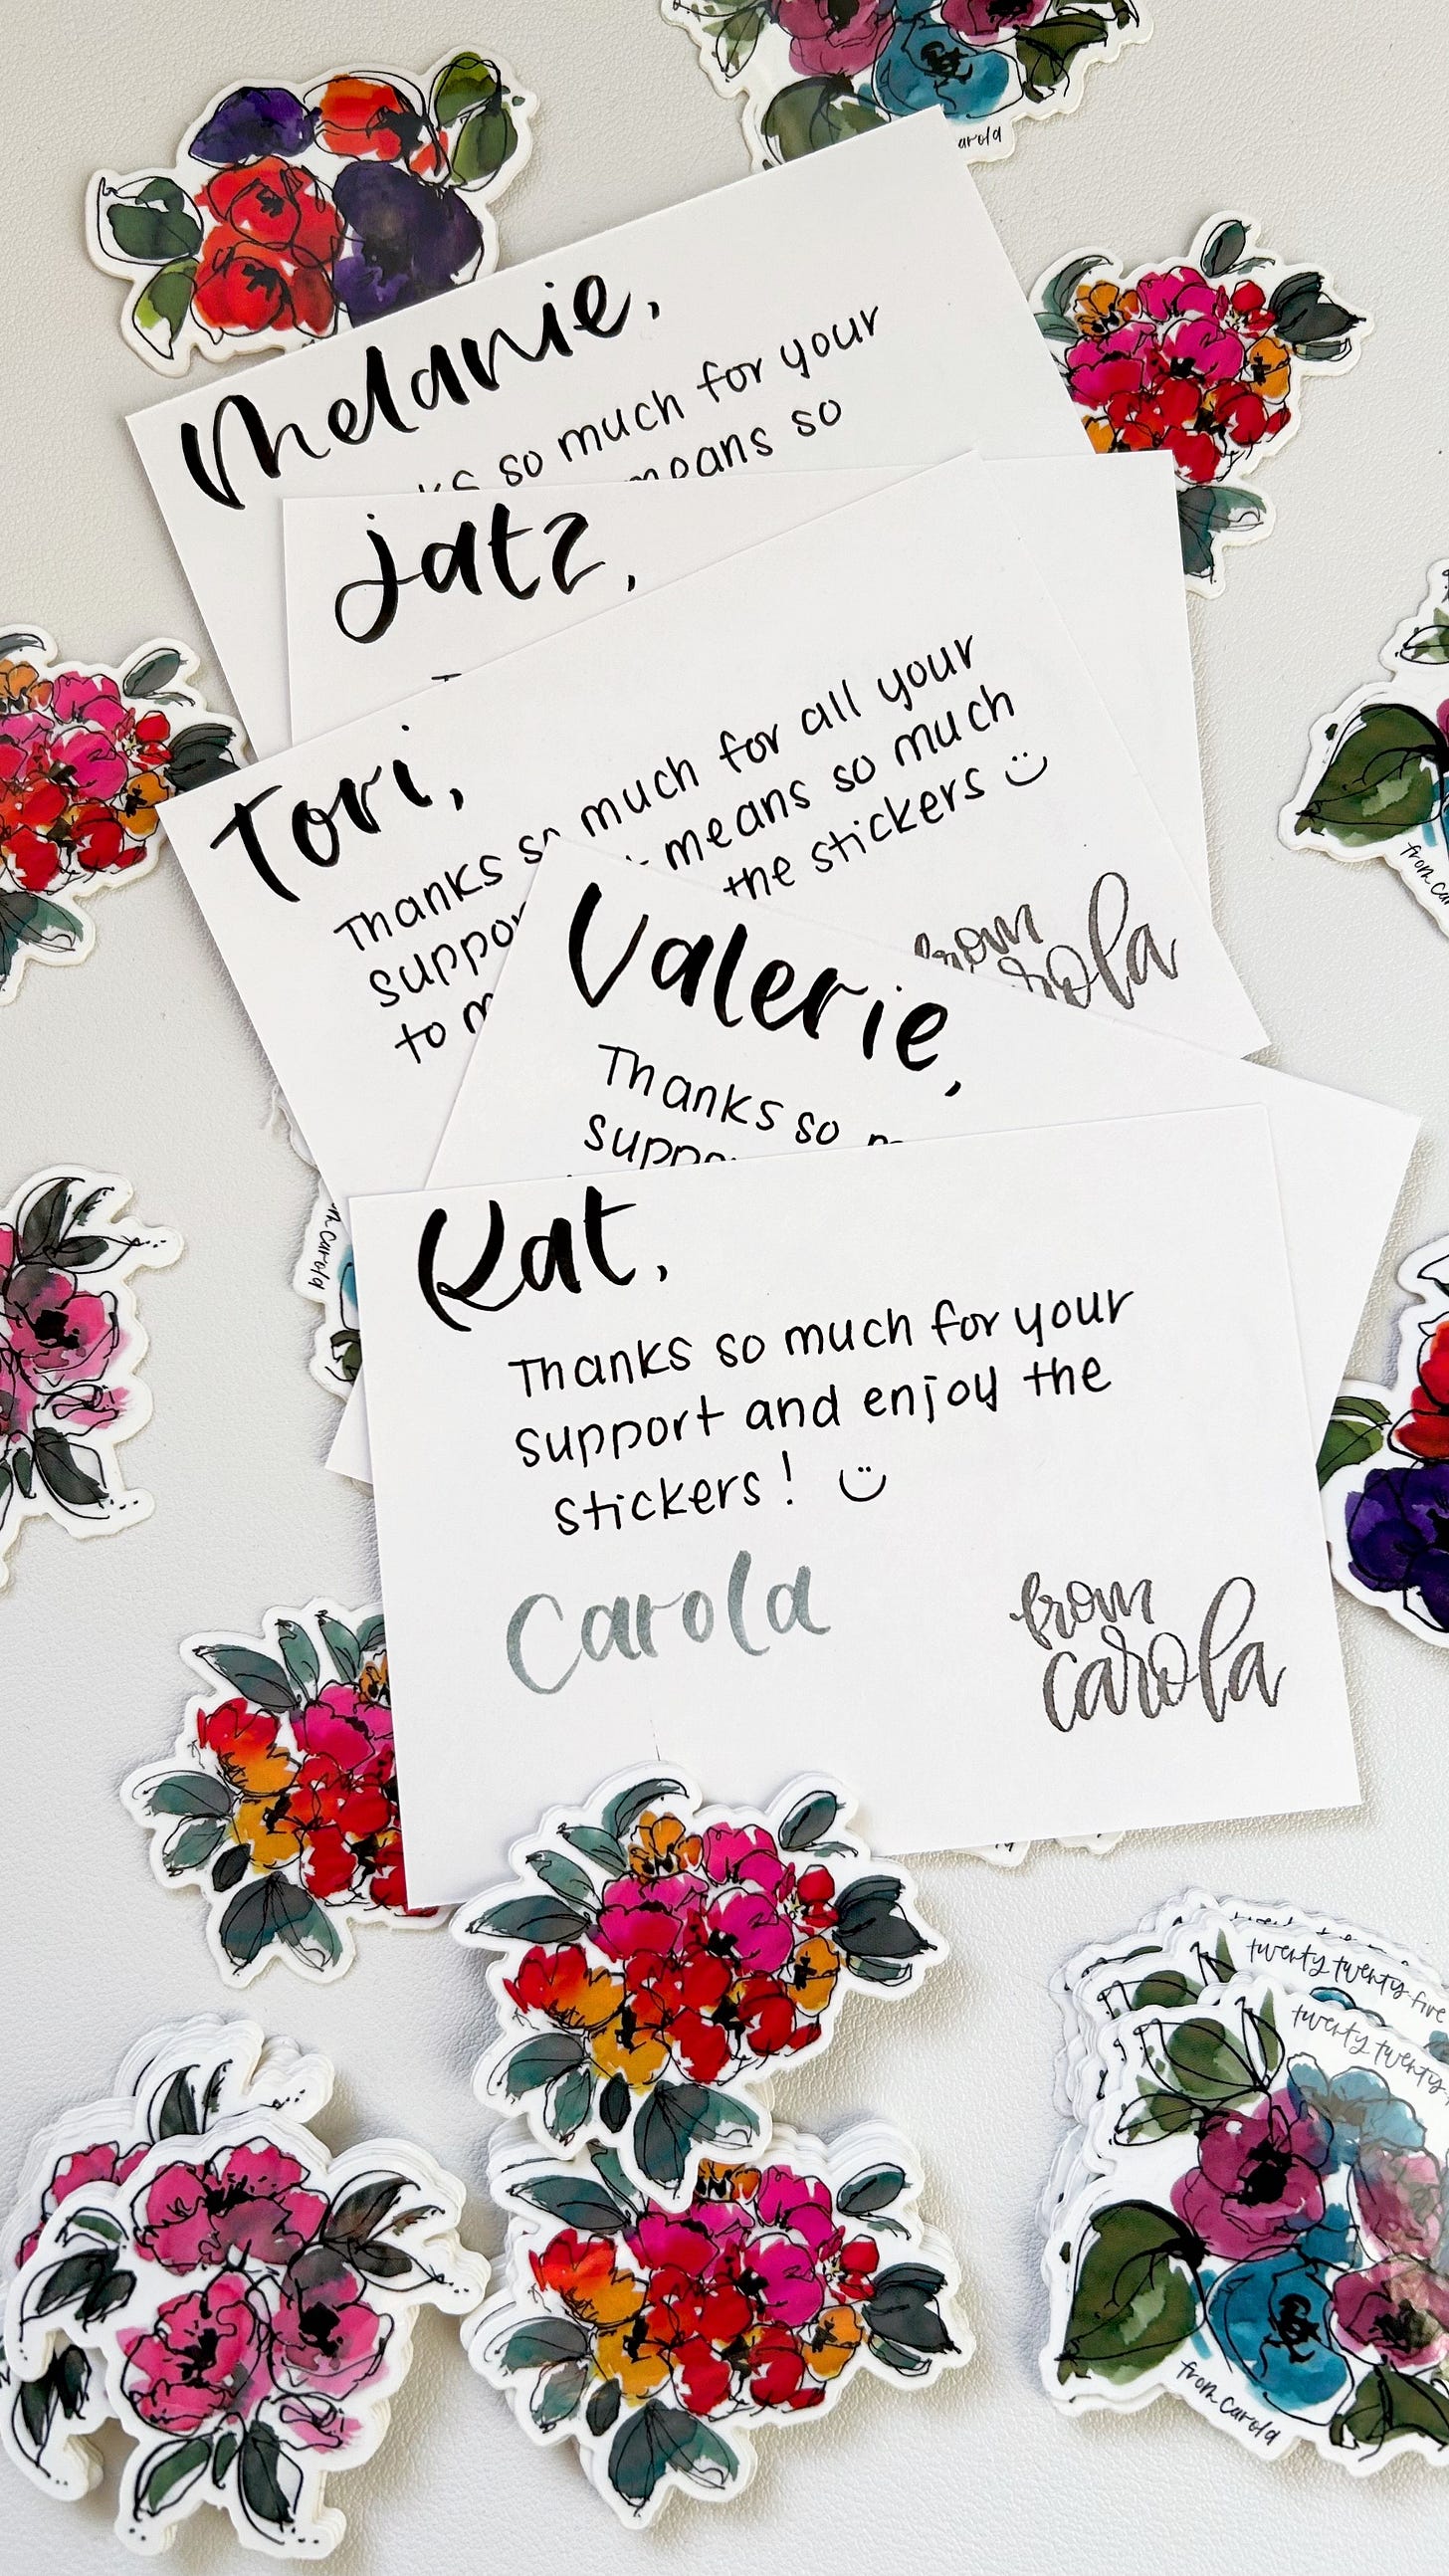 arola
Melanie,
so much for your
means so
Jatz,
Tori,
Thanks so much for all your
means so much
the stickers
to
from
Valerie,
Thanks so
from car
Kat,
Thanks so much for your
support and enjoy the
stickers!
Carola
from
carola
Carola
twenty twenty five
twenty twenty
from carola